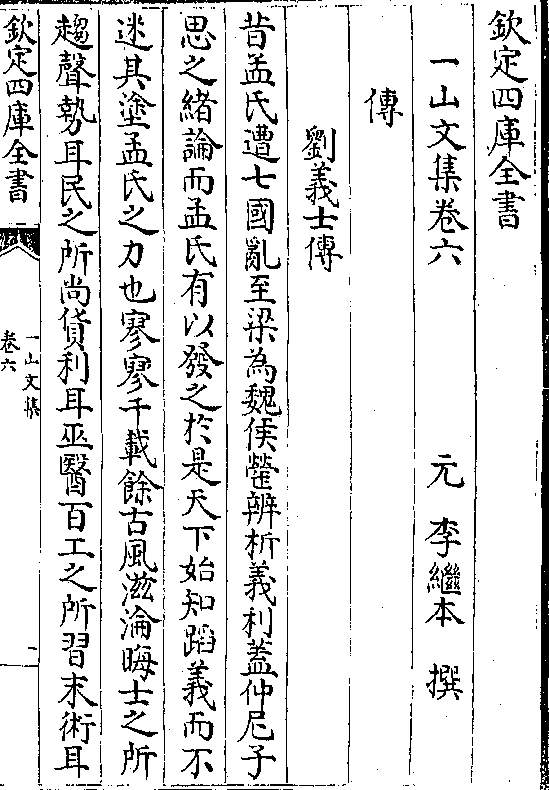 欽定四庫全書
一山文集卷六
元 李繼本 撰
傳
劉義士傳
昔孟氏遭七國亂至梁為魏侯罃辨析義利蓋仲尼子
思之緒論而孟氏有以發之於是天下始知蹈義而不
迷其塗孟氏之力也寥寥千載餘古風滋淪晦士之所
趨聲勢耳民之所尚貨利耳巫醫百工之所習末術耳
欽定四庫全書
一山文集
卷六
一